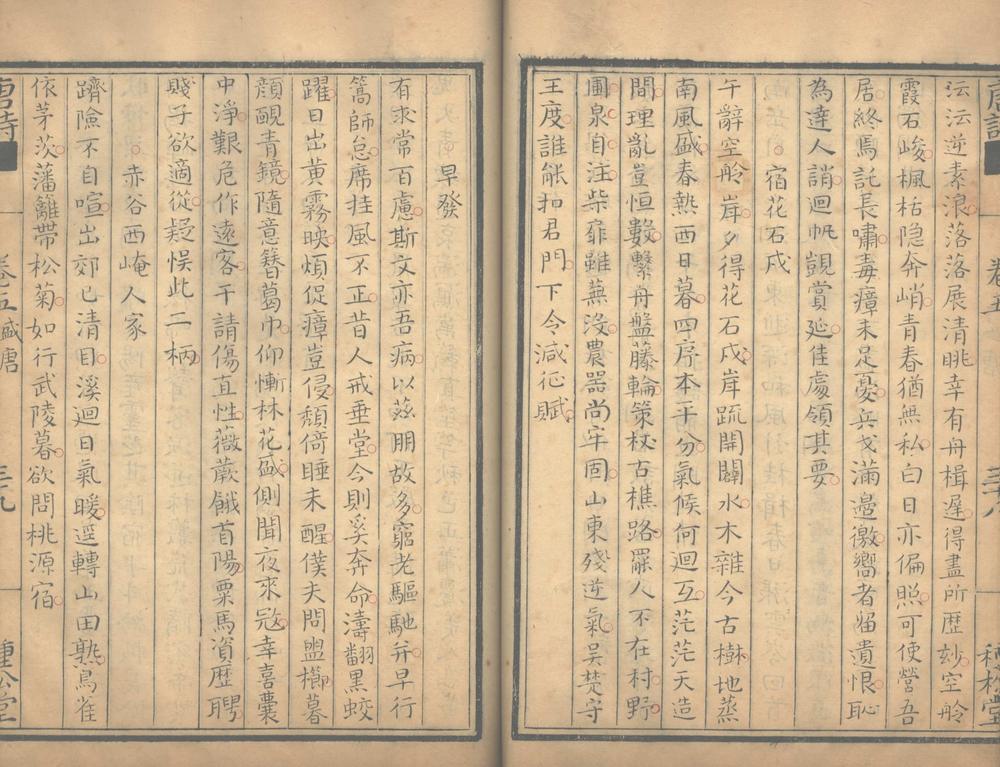 沄沄逆素浪落落展清眺幸有舟楫遲得盡所歷妙空舲
霞石峻楓栝隐奔峭青春猶無私白日亦偏照可使營吾
居終焉託長嘯毒瘴未足憂兵戈滿邊徼嚮者留遺恨恥
為達人誚迴帆覬賞延佳處領其要
宿花石戍
午辭空舲岸夕得花石戍岸疏開闢水木雜今古樹地蒸
南風盛春熱西日暮四序本平分氣候何迴互茫茫天造
間理亂豈恒數繫舟盤藤輪策杖古樵路罷人不在村野
圃泉自注柴扉雖蕪沒農器尚牢固山東殘逆氣吳楚守
王度誰能扣君門下令減征賦
唐詩
卷五
三十八
種松堂
早發
有求常百慮斯文亦吾病以茲朋故多窮老驅馳并早行
篙師怠席挂風不正昔人戒垂堂今則奚奔命濤翻黑蛟
躍日出黃霧映煩促瘴豈侵頹倚睡未醒僕夫問盥櫛暮
顏靦青鏡隨意簪葛巾仰慚林花盛側聞夜來冦幸喜囊
中淨艱危作遠客干請傷直性薇蕨餓首陽粟馬資歷聘
賤子欲適從疑悮此二柄
赤谷西崦人家
躋險不自喧出郊已清目溪迴日氣暖逕轉山田熟鳥雀
依茅茨藩籬帶松菊如行武陵暮欲問桃源宿
唐詩
卷五盛唐
三十九
種松堂